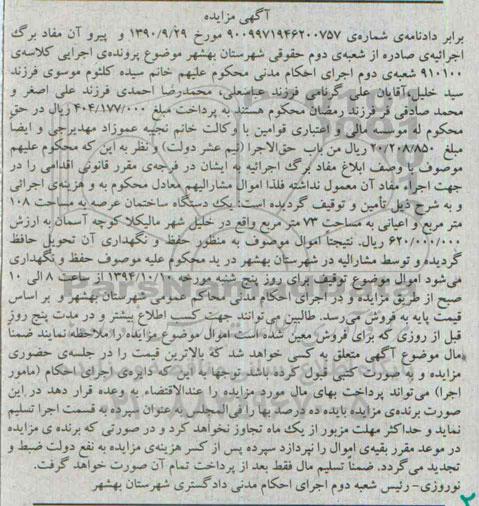 آگهی مزایده
برابر دادنامه‌ی شماره‌ی ۹۰۰۹۹۷۱۹۴۶۲۰۰۷۵۷ مورخ ۱۳۹۰/۹/۲۹ و پیرو آن مفاد برگ
اجرائیه‌ی صادره از شعبه‌ی دوم حقوقی شهرستان بهشهر موضوع پرونده‌ی اجرایی کلاسه‌ی
۹۱۰۱۰۰ شعبه‌ی دوم اجرای احکام مدنی محکوم علیهم خانم سیده کلثوم موسوی فرزند
سید خلیل،آقایان علی گرنامی فرزند عباسعلی، محمدرضا احمدی فرزند علی اصغر و
محمد صادقی فر فرزند رمضان محکوم هستند به پرداخت مبلغ ۴۰۴/۱۷۷/۰۰۰ ریال در حق
محکوم له موسسه مالی و اعتباری قوامین با وکالت خانم نجیبه عموزاد مهدیرجی و ایضا
مبلغ ۲۰/۲۰۸/۸۵۰ ریال من باب حق‌الاجرا (نیم عشر دولت) و نظر به این که محکوم علیهم
موصوف با وصف ابلاغ مفاد برگ اجرائیه به ایشان در فرجه‌ی مقرر قانونی اقدامی را در
جهت اجراء مفاد آن معمول نداشته فلذا اموال مشارالیهم معادل محکوم به و هزینه‌ی اجرائی
و به شرح ذیل تأمین و توقیف گردیده است: یک دستگاه ساختمان عرصه به مساحت ۱۰۸
متر مربع و اعیانی به مساحت ۷۳ متر مربع واقع در خلیل شهر مالیکلا کوچه آسمان به ارزش
۶۲۰/۰۰۰/۰۰۰ ریال. نتیجتا اموال موصوف به منظور حفظ و نگهداری آن تحویل حافظ
گردیده و توسط مشارالیه در شهرستان بهشهر در ید محکوم علیه موصوف حفظ و نگهداری
می‌شود اموال موضوع توقیف برای روز پنج شنبه مورخه ۱۳۹۴/۱۰/۱۰ از ساعت ۸ الی ۱۰
صبح از طریق مزایده و در اجرای احکام مدنی محاکم عمومی شهرستان بهشهر و بر اساس
قیمت پایه به فروش می‌رسد. طالبین می‌توانند جهت کسب اطلاع بیشتر و در مدت پنج روز
قبل از روزی که برای فروش معین شده است اموال موضوع مزایده را ملاحظه نمایند ضمنا
مال موضوع آگهی متعلق به کسی خواهد شد که بالاترین قیمت را در جلسه‌ی حضوری
مزایده و به صورت کتبی قبول کرده باشد توجها به این که دایره‌ی اجرای احکام (مامور
اجرا) می‌تواند پرداخت بهای مال مورد مزایده را عندالاقتضاء به وعده قرار دهد در این
صورت برنده‌ی مزایده بایده ده درصد بها را فی‌المجلس به عنوان سپرده به قسمت اجرا تسلیم
نماید و حداکثر مهلت مزبور از یک ماه تجاوز نخواهد کرد و در صورتی که برنده ی مزایده
در موعد مقرر بقیه‌ی اموال را نپردازد سپرده پس از کسر هزینه‌ی مزایده به نفع دولت ضبط و
تجدید می‌گردد. ضمناً تسلیم مال فقط بعد از پرداخت تمام آن صورت خواهد گرفت.
نوروزی- رئیس شعبه دوم اجرای احکام مدنی دادگستری شهرستان بهشهر
۲